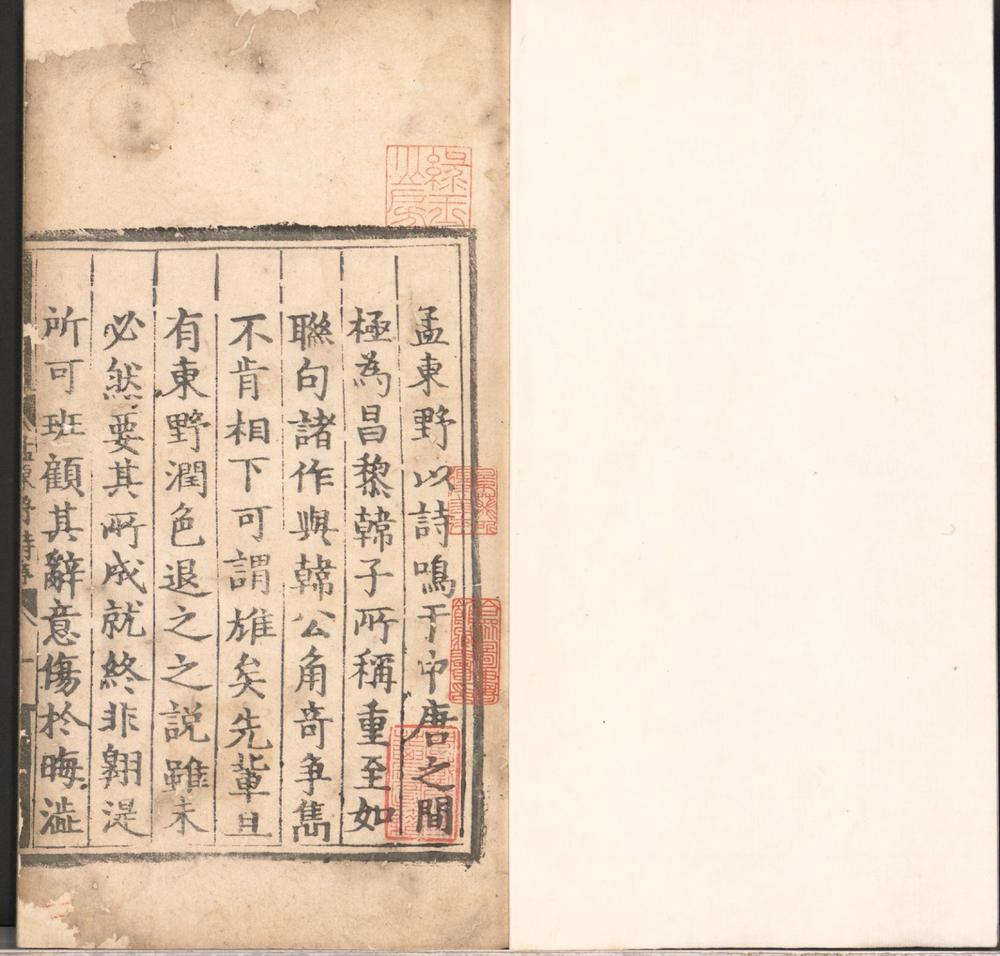 孟東野以詩鳴于中唐之間
極為昌黎韓子所稱重至如
聯句諸作與韓公角奇爭雋
不肯相下可謂雄矣先輩且
有東野潤色退之之説雖未
必然要其所成就終非翱湜
所可班顧其辭意傷於晦澁
孟東野詩序